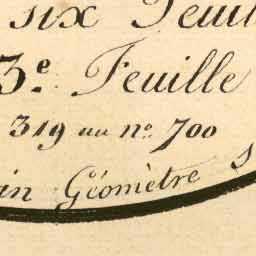 six Feuil
3e. Feuille
319 au no. 700
in Géomètre s